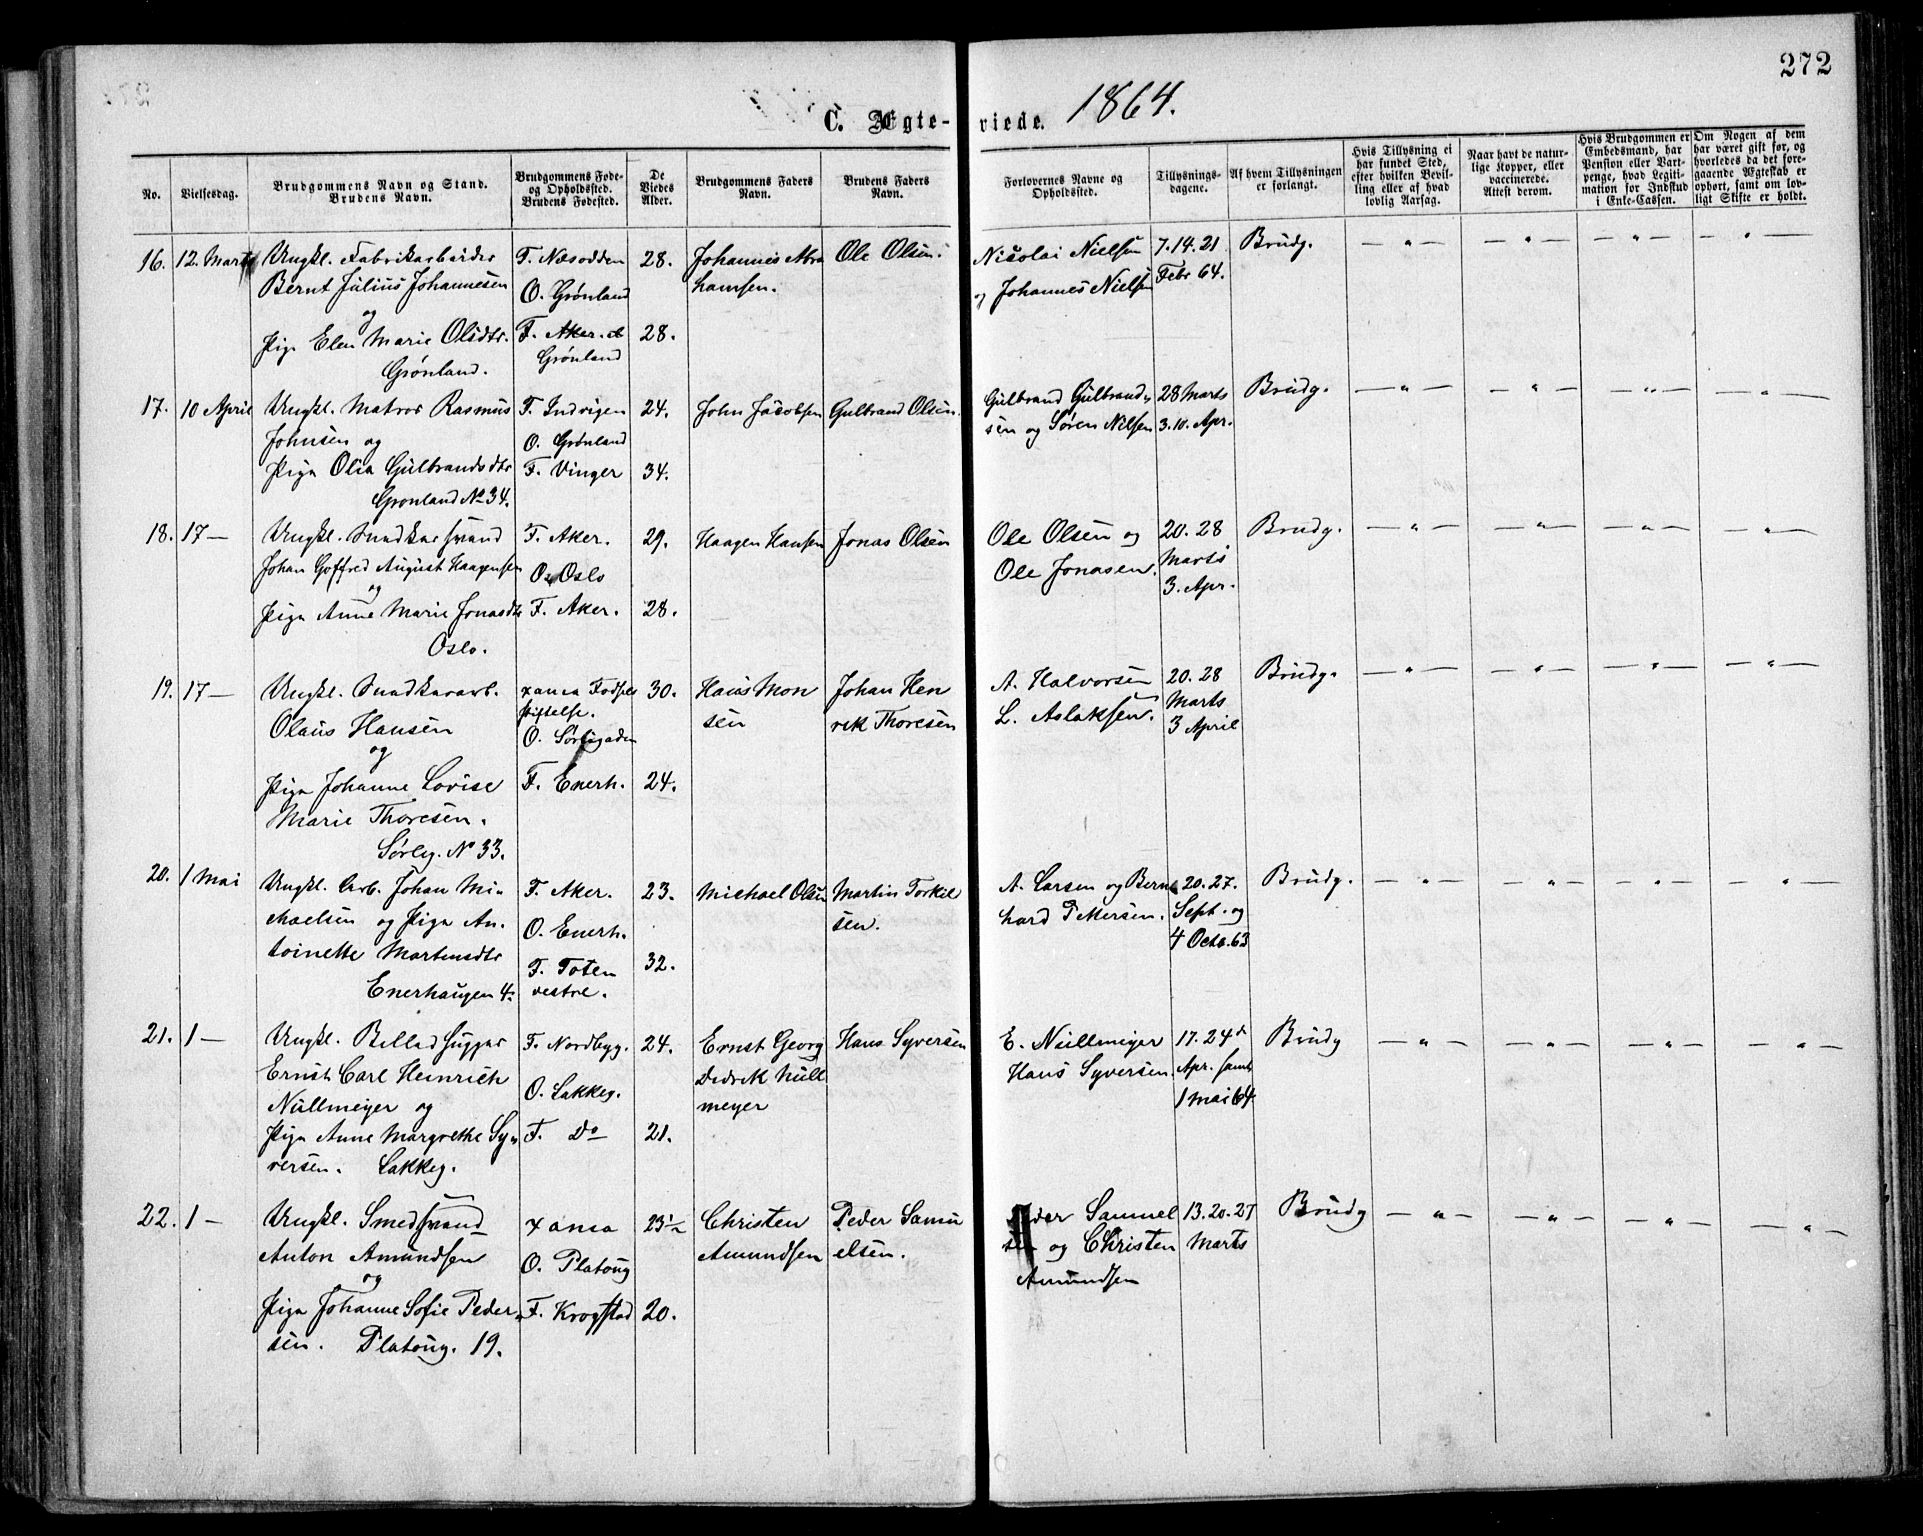 272
C. Ægte-viede. 1864.
No.
Vielsesdag.
Brudgommens Navn og Stand.
Brudens Navn.
Brudgommens Føde-
og Opholdssted.
Brudens Fødested.
De
Viedes
Alder.
Brudgommens Faders
Navn.
Brudens Faders
Navn.
Forlovernes Navne og
Opholdssted.
Tillysnings-
dagene.
Af hvem Tillysningen
er forlangt.
Hvis Tillysning ei
har fundet Sted,
efter hvilken Bevil-
ling eller af hvad
lovlig Aarsag.
Naar havt de natur-
lige Kopper, eller
vaccinerede.
Attest derom.
Hvis Brudgommen er
Embedsmand, har
Pension eller Vart-
penge, hvad Legiti-
mation for Indskud
i Enke-Cassen.
Om Nogen af dem
har været gift før, og
hvorledes da det fore-
gaaende Ægteskab er
ophørt, samt om lov-
ligt Skifte er holdt.
16. 12. Marts
Ungkl. Fabrikarbeider
Bernt Julius Johannesen
og
Pige Elen Marie Olsdtr.
Grønland.
F. Næsodden
O. Grønland
F. Aker. O
Grønland
28.
28.
Johannes Abra
hamsen.
Ole Olsen.
Nicolai Nielsen
og Johannes Nielsen
7. 14. 21
Febr 64.
Brudg.
— " — — " — — " — — " —
17. 10 April
Ungkl. Matros Rasmus
Johnsen og
Pige Olia Gulbrandsdtr
Grønland No 34.
F. Indvigen
O. Grønland
F. Vinger
24.
34.
John Jacobsen
Gulbrand Olsen.
Gulbrand Gulbrand-
sen og Søren Nilsen
28 Marts
3. 10. Apr.
Brudg.
— " — — " — — " — — " —
18. 17 —
Ungkl. Snedkersvend
Johan Goffred August Haagensen
og
Pige Anne Marie Jonasdtr
Oslo.
F. Aker.
O. Oslo
F. Aker.
29.
28.
Haagen Hansen
Jonas Olsen
Ole Olsen og
Ole Jonasen.
20. 28
Marts
3. Apr.
Brudg.
— " — — " — — " — — " —
19. 17 —
Ungkl. Snedkerarb.
Olaus Hansen
og
Pige Johanne Lovise
Marie Thoresen.
Sørlig. No 33.
Xania Fødsels
stiftelse.
O. Sørligaden
F. Enerh.
30.
24.
Hans Mon
sen
Johan Hen
rik Thoresen
A. Halvorsen
L. Aslaksen.
20. 28
Marts
3 April
Brudg.
— " — — " — — " — — " —
20. 1 Mai
Ungkl. Arb. Johan Mi-
chaelsen og Pige An-
toinette Martinsdtr
Enerhaugen 4.
F. Aker.
O. Enerh.
F. Toten
vestre.
23.
32.
Michael Olsen
Martin Torkil
sen.
A. Larsen og Bern
hard Pettersen.
20. 27.
Sept. og
4 Octo. 63
Brudg.
— " — — " — — " — — " —
21. 1 —
Ungkl. Billedhugger
Ernst Carl Heinrich
Nüllmeijer og
Pige Anne Margrethe Sy-
versen. Lakkeg.
F. Nordbyg.
O. Lakkeg.
F. Do
24.
21.
Ernst Georg
Didrik Nüll
meyer
Hans Syversen
E. Nüllmeijer
Hans Syversen.
17. 24de
Apr. samt
1 Mai 64
Brudg
— " — — " — — " — — " —
22. 1 —
Ungkl. Smedsvend
Anton Amundsen
og
Pige Johanne Sofie Peder-
sen. Platoug. 19.
Xania
O. Platoug
F. Krogstad
23 1/2
20.
Christen
Amundsen
Peder Samu
elsen.
Peder Samuel
sen og Christen
Amundsen
13. 20. 27
Marts
Brudg
— " — — " — — " — — " —